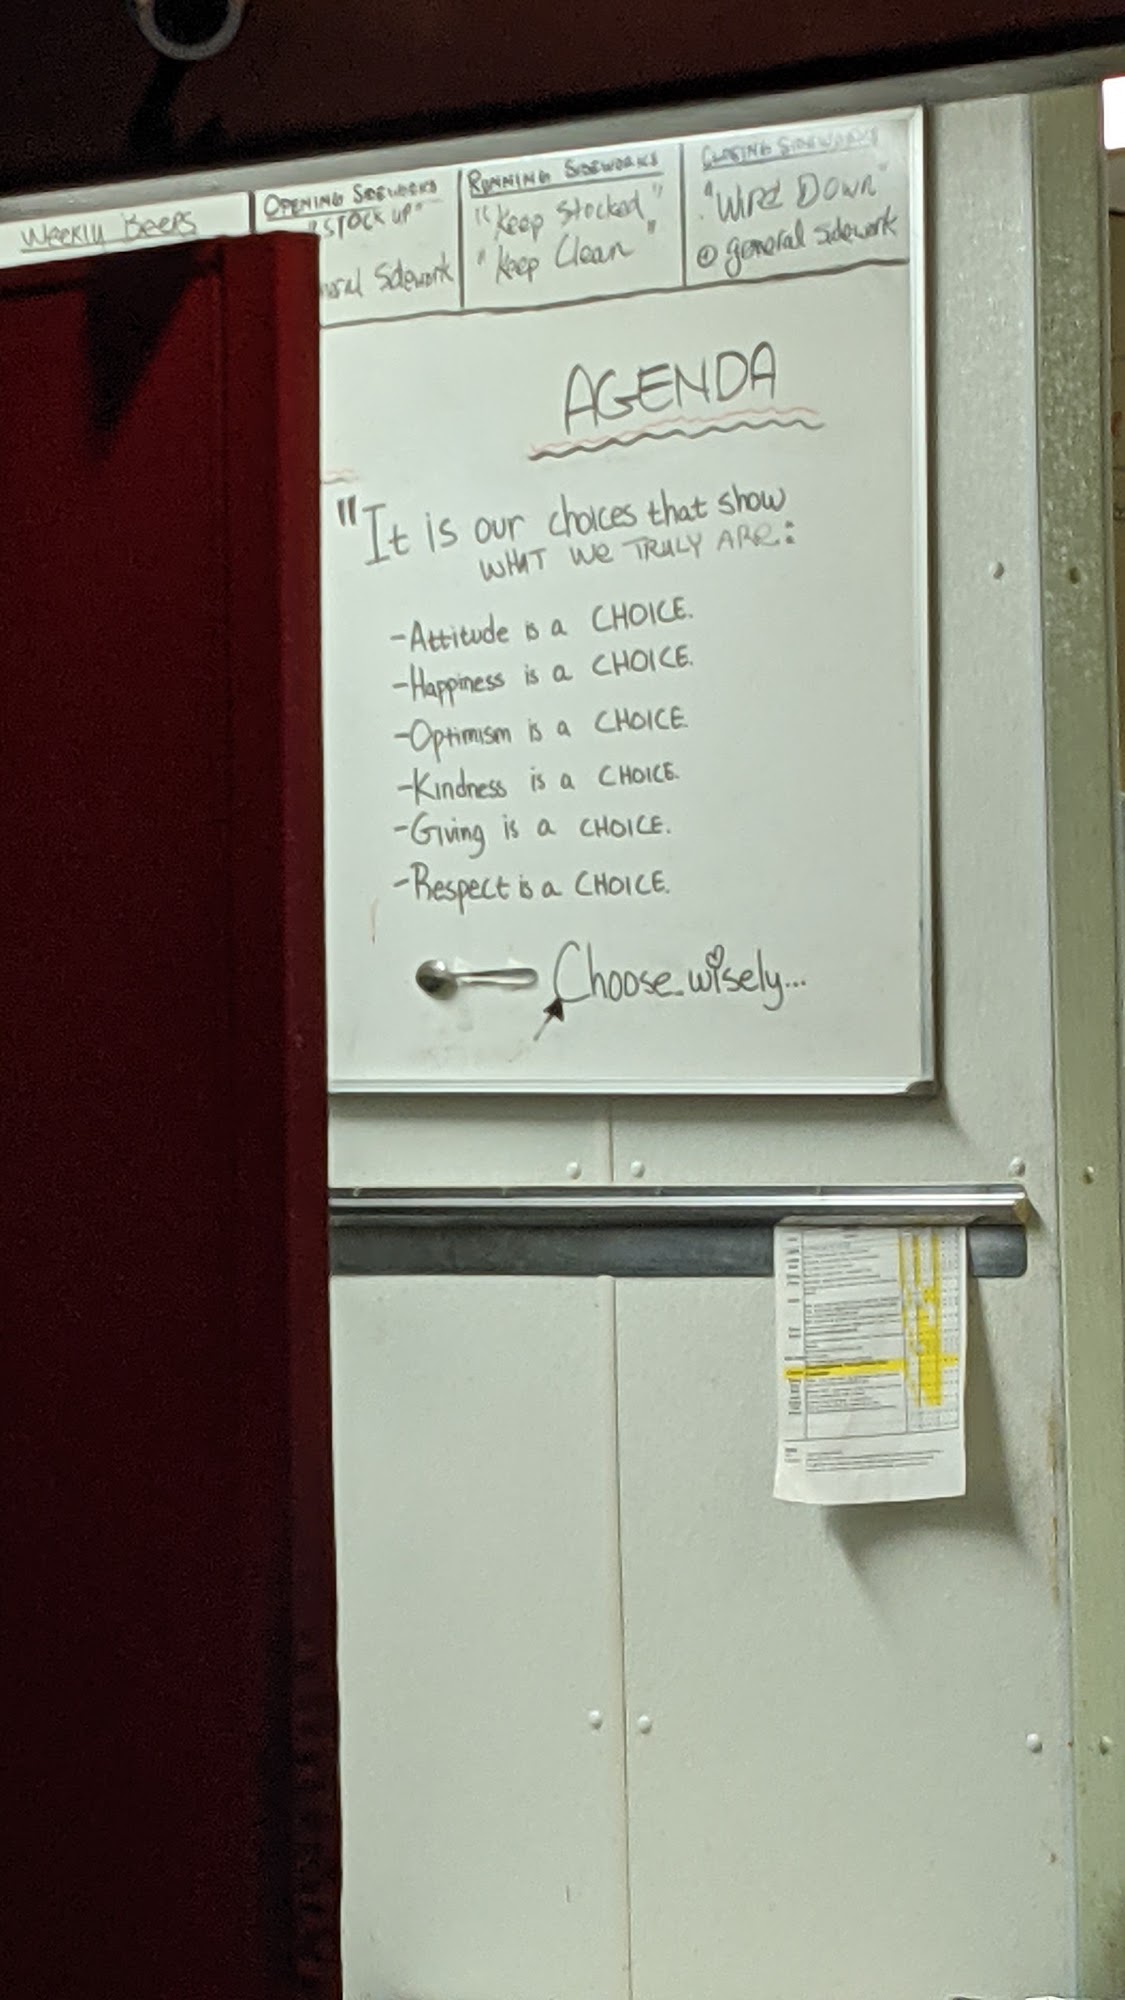 Weekly Beers
OPENING SIDEWORKS
"STOCK UP"
Sidework
RUNNING SIDEWORKS
"Keep Stocked"
"Keep Clean"
CLOSING SIDEWORKS
"Wind Down"
general sidework
AGENDA
"It is our choices that show
WHAT WE TRULY ARE:
-Attitude is a CHOICE.
-Happiness is a CHOICE.
-Optimism is a CHOICE
-Kindness is a CHOICE.
-Giving is a CHOICE.
-Respect is a CHOICE.
Choose wisely...